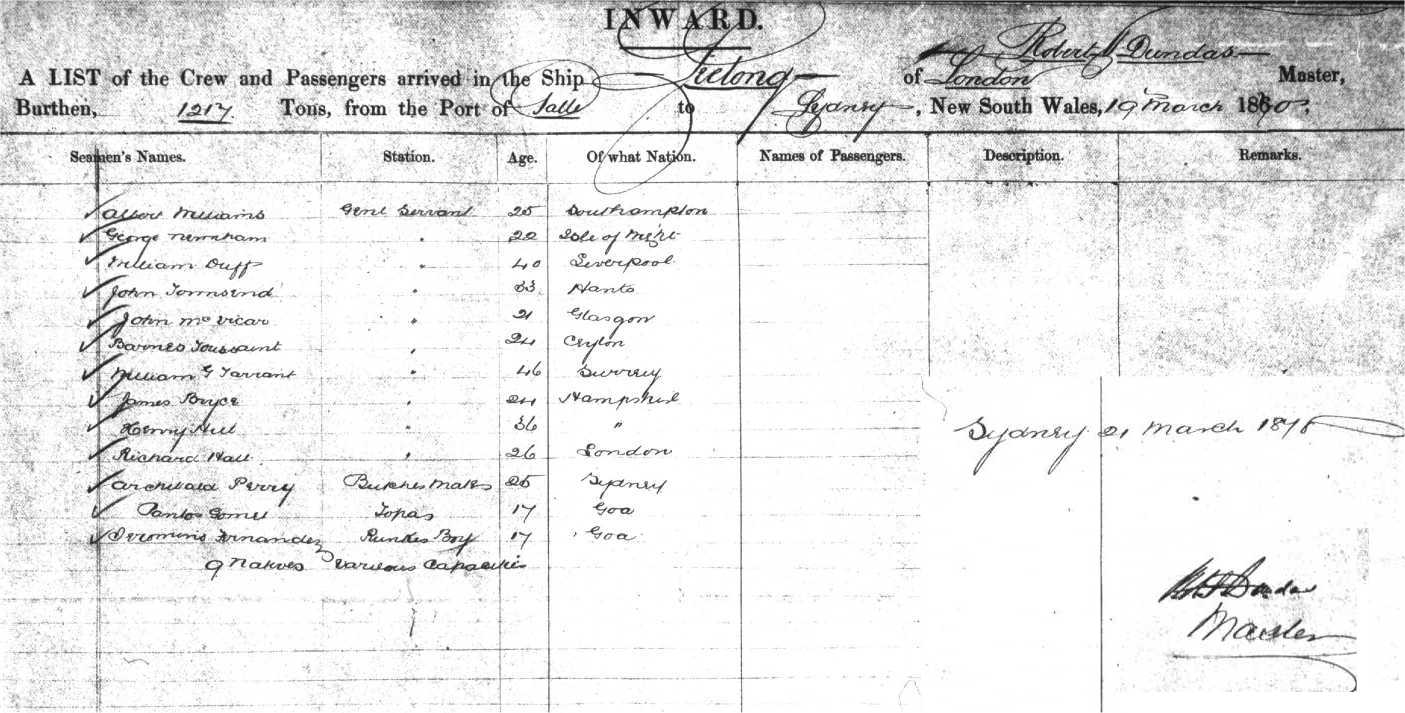 INWARD.
Robert J Dundas
A LIST of the Crew and Passengers arrived in the Ship Geelong of London Master,
Burthen, 1217 Tons, from the Port of Galle to Sydney, New South Wales, 19 March 1870.
Seamen's Names. Station. Age. Of what Nation. Names of Passengers. Description. Remarks.
Albert Williams Genl Servant 25 Southampton
George Newnham " 22 Isle of Wight
William Duff " 40 Liverpool
John Townsend " 33 Hants
John McVicar " 21 Glasgow
Barnes Toussaint " 24 Ceylon
William G Tarrant " 46 Surrey
James Bryce " 24 Hampshire
Henry Hill " 36 "
Richard Hall " 26 London
Archibald Perry Butchers Mate 25 Sydney
Gomes Topas 17 Goa
Fernandez Boy 17 Goa
9 Natives various Capacities
Sydney 21 March 187
Dundas
Master